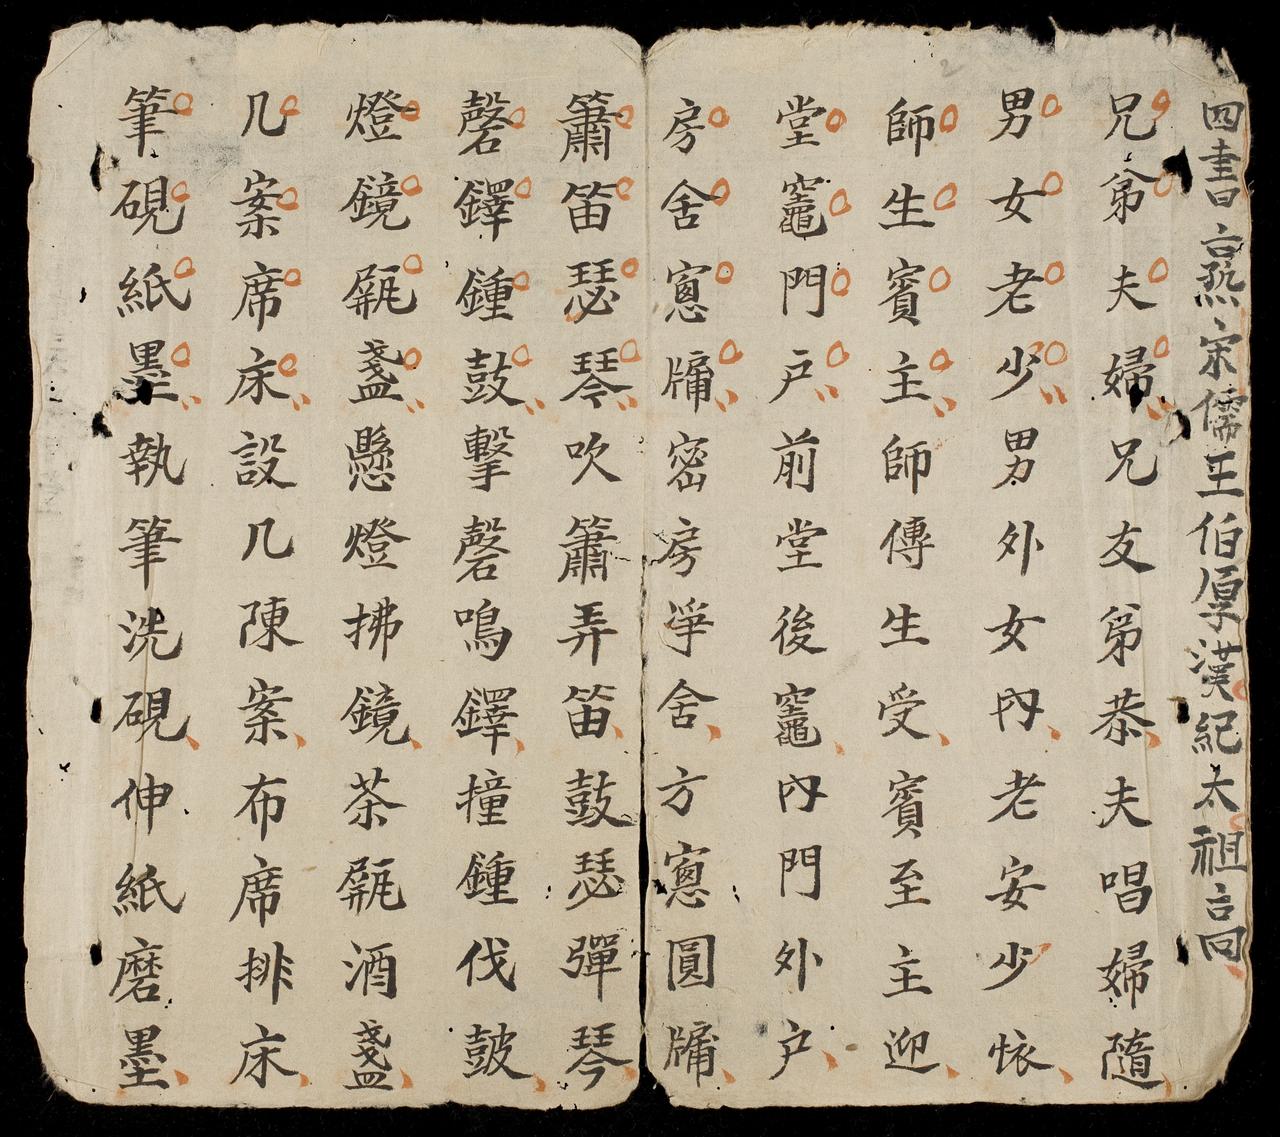 兄弟夫婦兄友弟恭夫唱婦隨
男女老少男外女內老安少懷
師生賓主師傳生受賓至主迎
堂竈門戶前堂後竈內門外戶
房舍窻牖密房淨舍方窻圓牖
簫笛瑟琴吹簫弄笛鼓瑟彈琴
磬鐸鍾鼓擊磬鳴鐸撞鍾伐鼓
燈鏡瓶盞懸燈拂鏡茶瓶酒盞
几案席床設几陳案布席排床
筆硯紙墨執筆洗硯伸紙磨墨
四書 宋儒王伯厚漢紀太祖